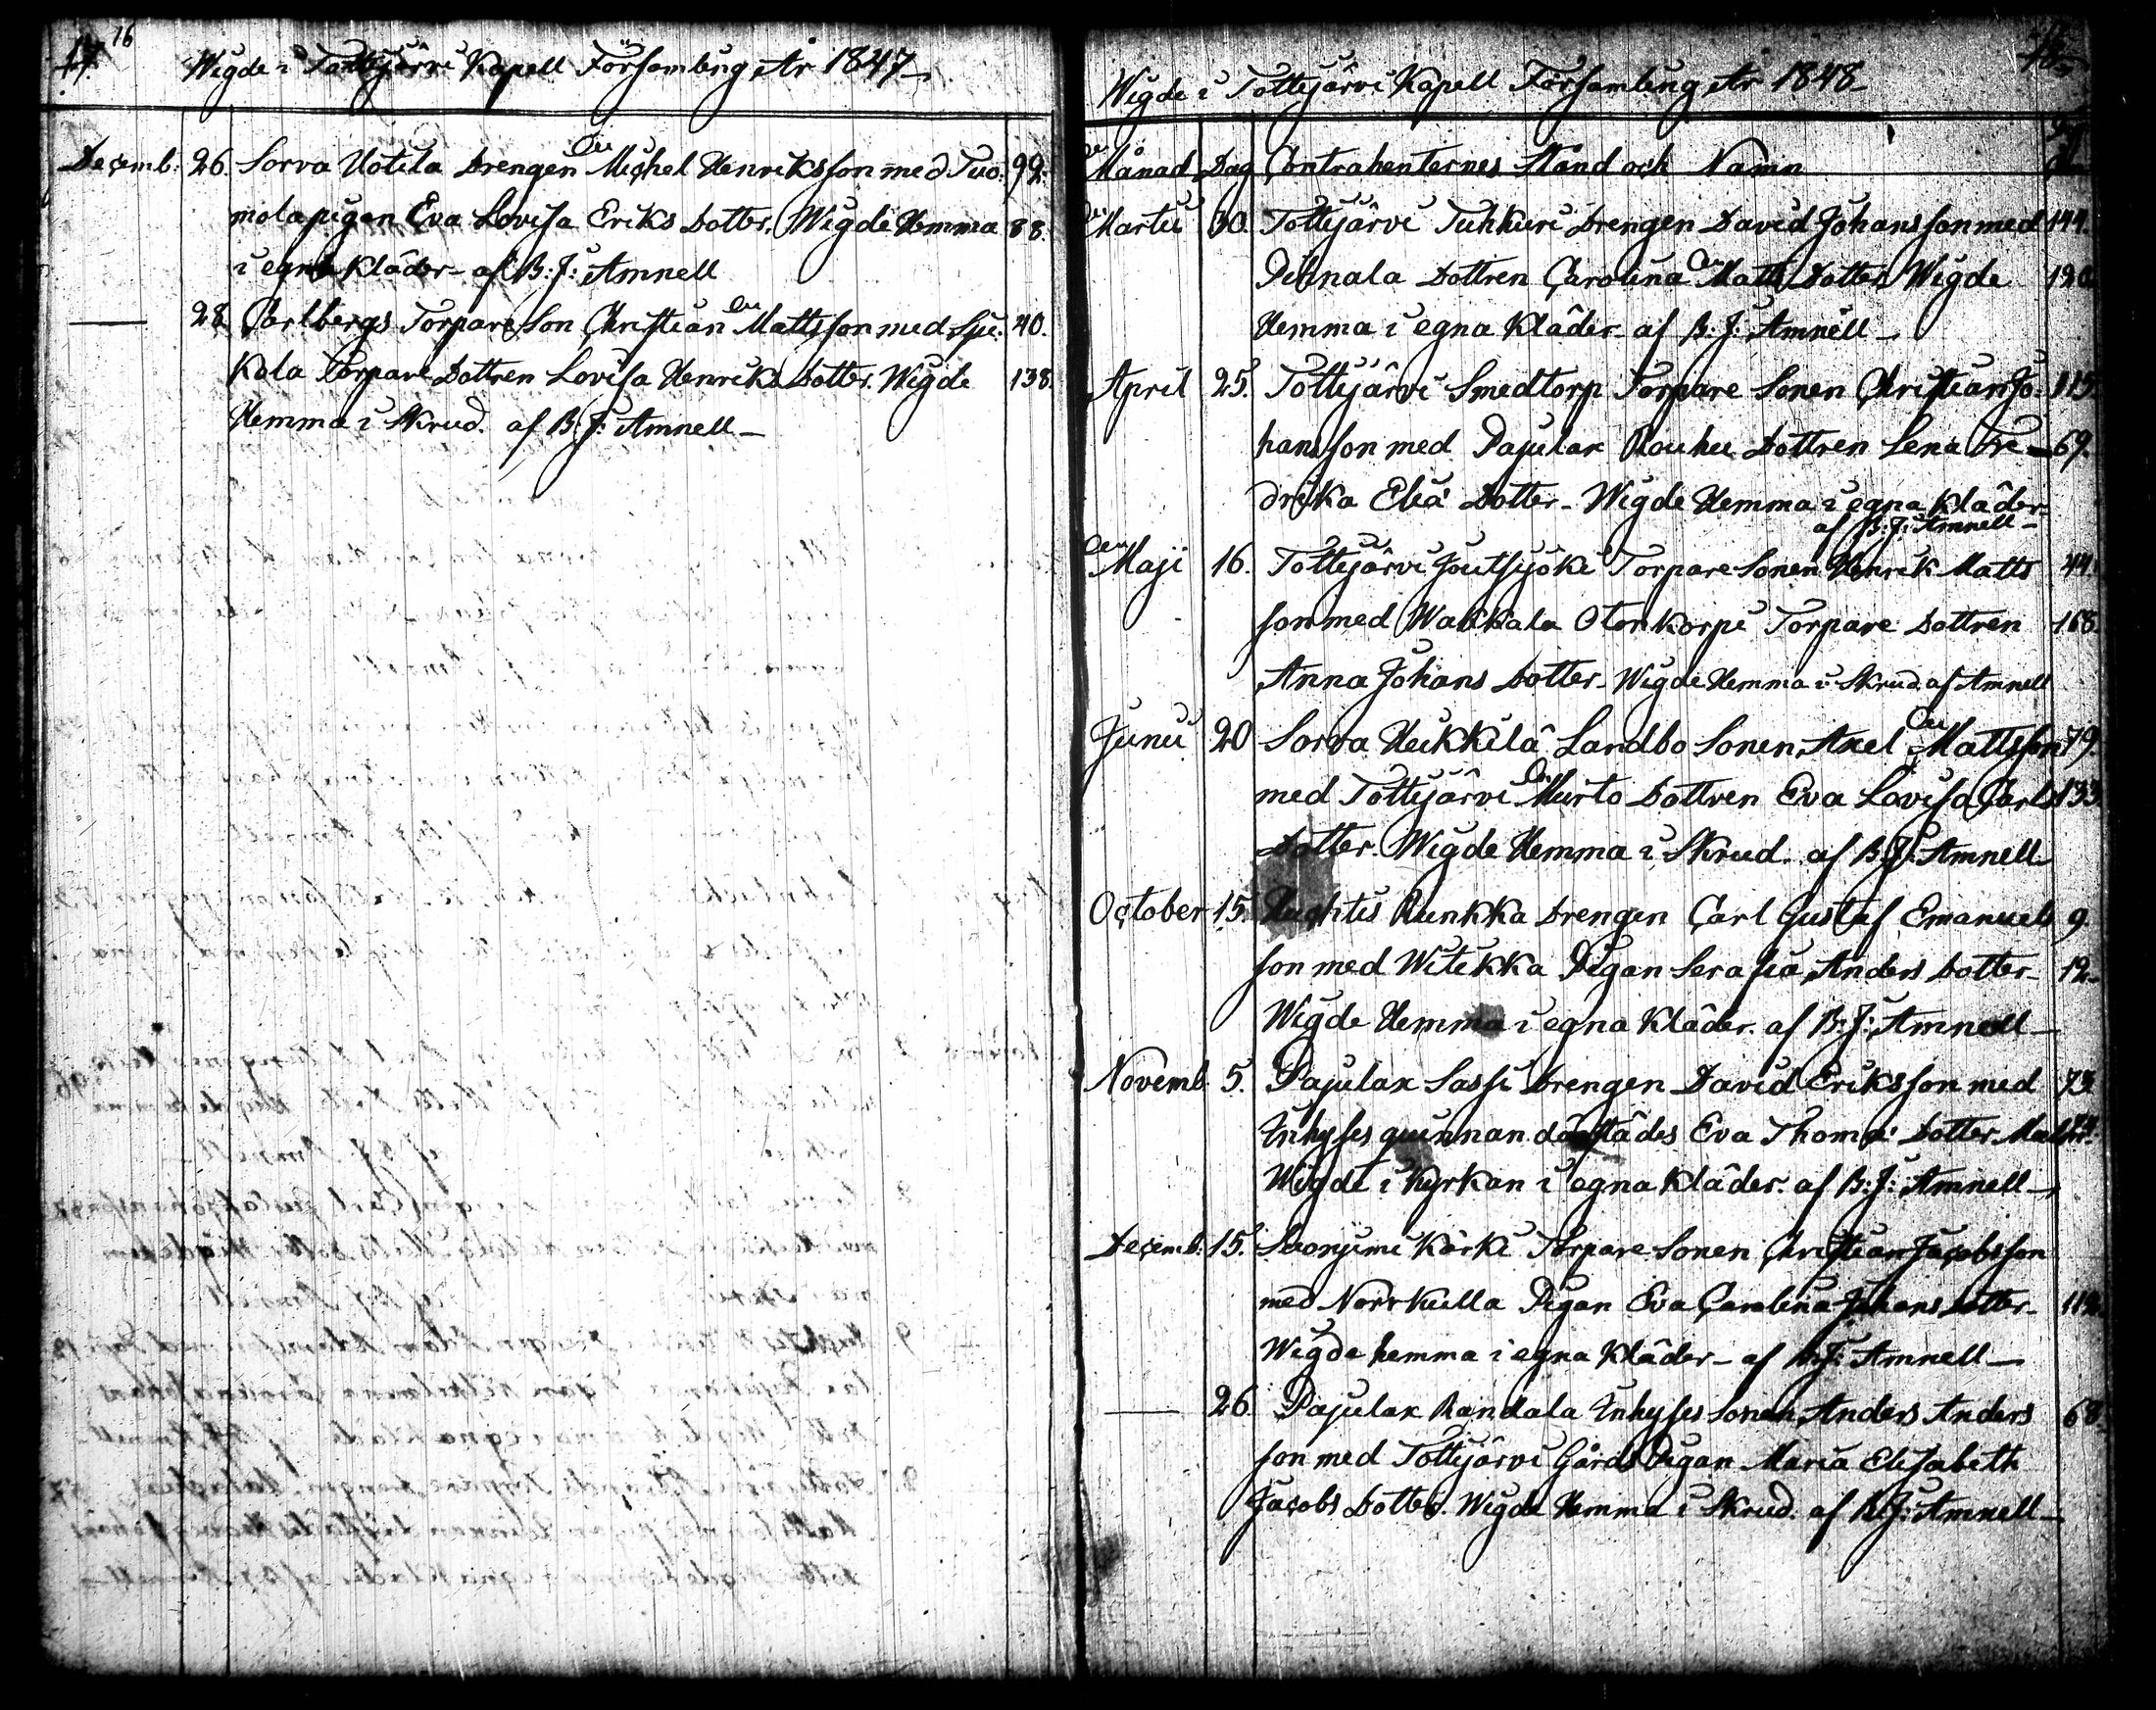 16
17.
Wigde i Tottijärvi Kapell Församling År 1847
Decemb: 26. Sorva Uotila Drengen Michel Henriksson med Tuo: 92.
molapigan Eva Lovisa Eriks Dotter. Wigde Hemma 88.
i egna Kläder - af B:J: Amnell
28 Carlbergs Torpare Son Christian Mattsson med Spi: 40.
Kala Torpare Dottren Lovisa Henriks Dotter. Wigde 138.
Hemma i Skrud. af B:J: Amnell -
Wigde i Tottijärvi Kapell Församling År 1848
Månad Dag Contrahenternes Stånd och Namn
Martii 30. Tottijärvi Tuhkuri Drengen David Johansson med 144.
Pihnala Dottren Carolina Matts Dotter Wigde 120.
Hemma i egna Kläder af B:J: Amnell -
April 25. Tottijärvi Smedtorp Torpare Sonen Christian Jo: 115.
hansson med Pajulax Rouhu Dottren Lena Fre 69.
drika Eliæ Dotter - Wigde Hemma i egna Kläder
af B:J: Amnell -
Maji 16. Tottijärvi Joutsijoki Torpare Sonen Henrik Matts 44.
son med Wakkala Otonkorpi Torpare Dottren 168.
Anna Johans Dotter - Wigde Hemma i Skrud af Amnell
Junii 20 Sorva Heikkilä Landbo Sonen Axel Mattsson 79.
med Tottijärvi Murto Dottren Eva Lovisa Carls 133
Dotter. Wigde Hemma i Skrud. af B:J: Amnell
October 15. Huchtis Runkka Drengen Carl Gustaf Emanuels 9.
son med Witikka Pigan Serafia Anders Dotter - 12.
Wigde Hemma i egna Kläder. af B:J: Amnell -
Novemb. 5. Pajulax Sassi Drengen David Eriksson med 73.
Inhyses quinnan därstädes Eva Thomæ Dotter
Wigde i Kyrkan i egna Kläder. af B:J: Amnell -
Decemb: 15. Suonjemi Kärki Torpare Sonen Christian Jacobsson
med Norrkulla Pigan Eva Carolina Johans Dotter -
Wigde hemma i egna Kläder - af B:J: Amnell -
26. Pajulax Randala Inhyses Sonen Anders Anders 68.
son med Tottijärvi Gårds Pigan Maria Elisabeth
Jacobs Dotter. Wigde Hemma i Skrud. af B:J: Amnell -